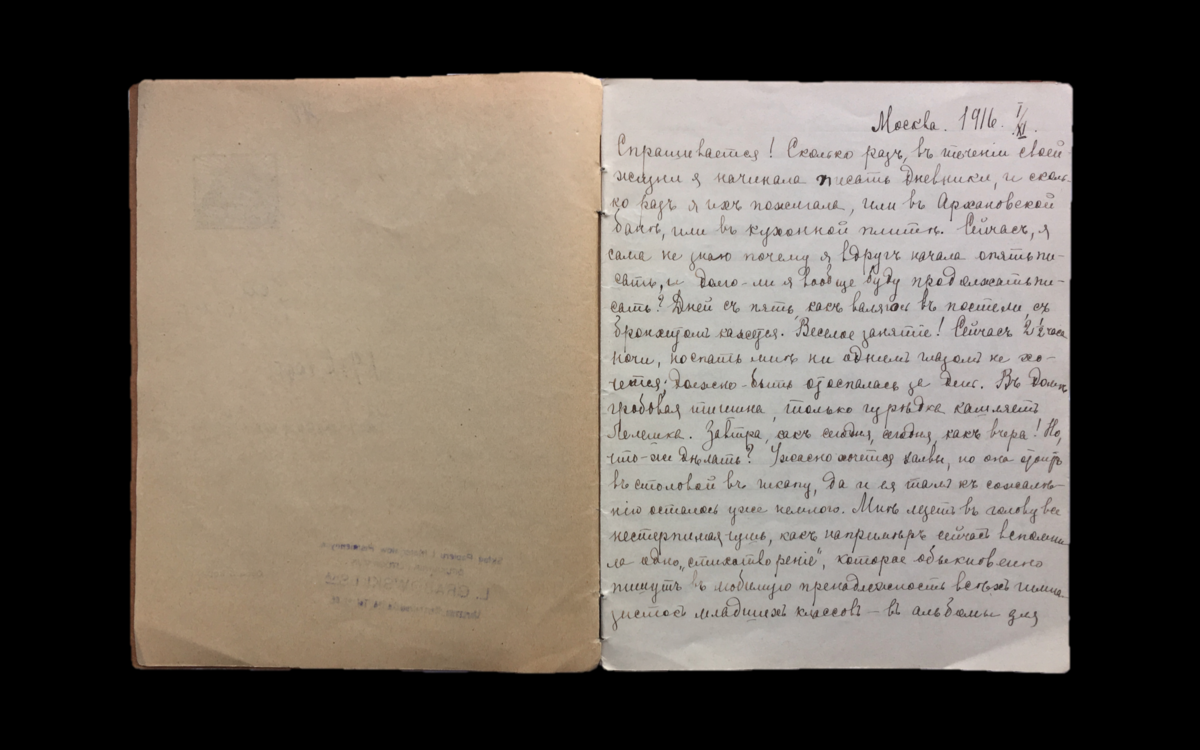 Москва. 1916. I/XI.
Спрашивается! Сколько разъ, въ теченіи своей
жизни я начинала писать дневники, и сколь-
ко разъ я ихъ пожигала, или въ Архановской
банѣ, или въ кухонной плитѣ. Сейчасъ, я
сама не знаю почему я вдругъ начала опять пи-
сать, и долго-ли я вообще буду продолжать пи-
сать? Дней съ пять, какъ валяюсь въ постели, съ
бронхитомъ кажется. Веселое занятіе! Сейчасъ 2 ½ часа
ночи, но спать мнѣ ни однимъ глазомъ не хо-
чется; должно-быть отоспалась за день. Въ домѣ
гробовая тишина, только изрѣдка кашляетъ
Лелешка. Завтра, какъ сегодня, сегодня, какъ вчера! Но,
что-же дѣлать? Ужасно хочется халвы, но она стоитъ
въ столовой въ шкапу, да и ея тамъ къ сожалѣ-
нію осталось уже немного. Мнѣ лѣзетъ въ голову все
нестерпимая чушь, какъ напримѣръ сейчасъ вспомни-
ла одно „стихотвореніе", которое обыкновенно
пишутъ в любимую пренадлежность всѣхъ гимна-
зистокъ младшихъ классовъ — въ альбомы для
L. GRABOWSKI i S-ka